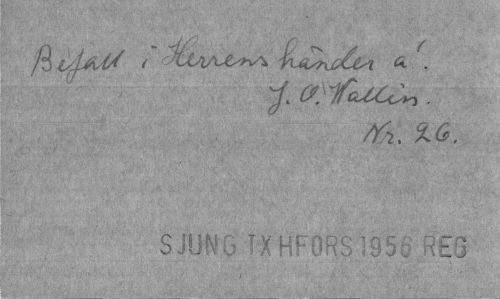 Befall i Herrens händer a'.
J. O. Wallin.
Nr. 26.
SJUNG IX HFORS 1956 REG